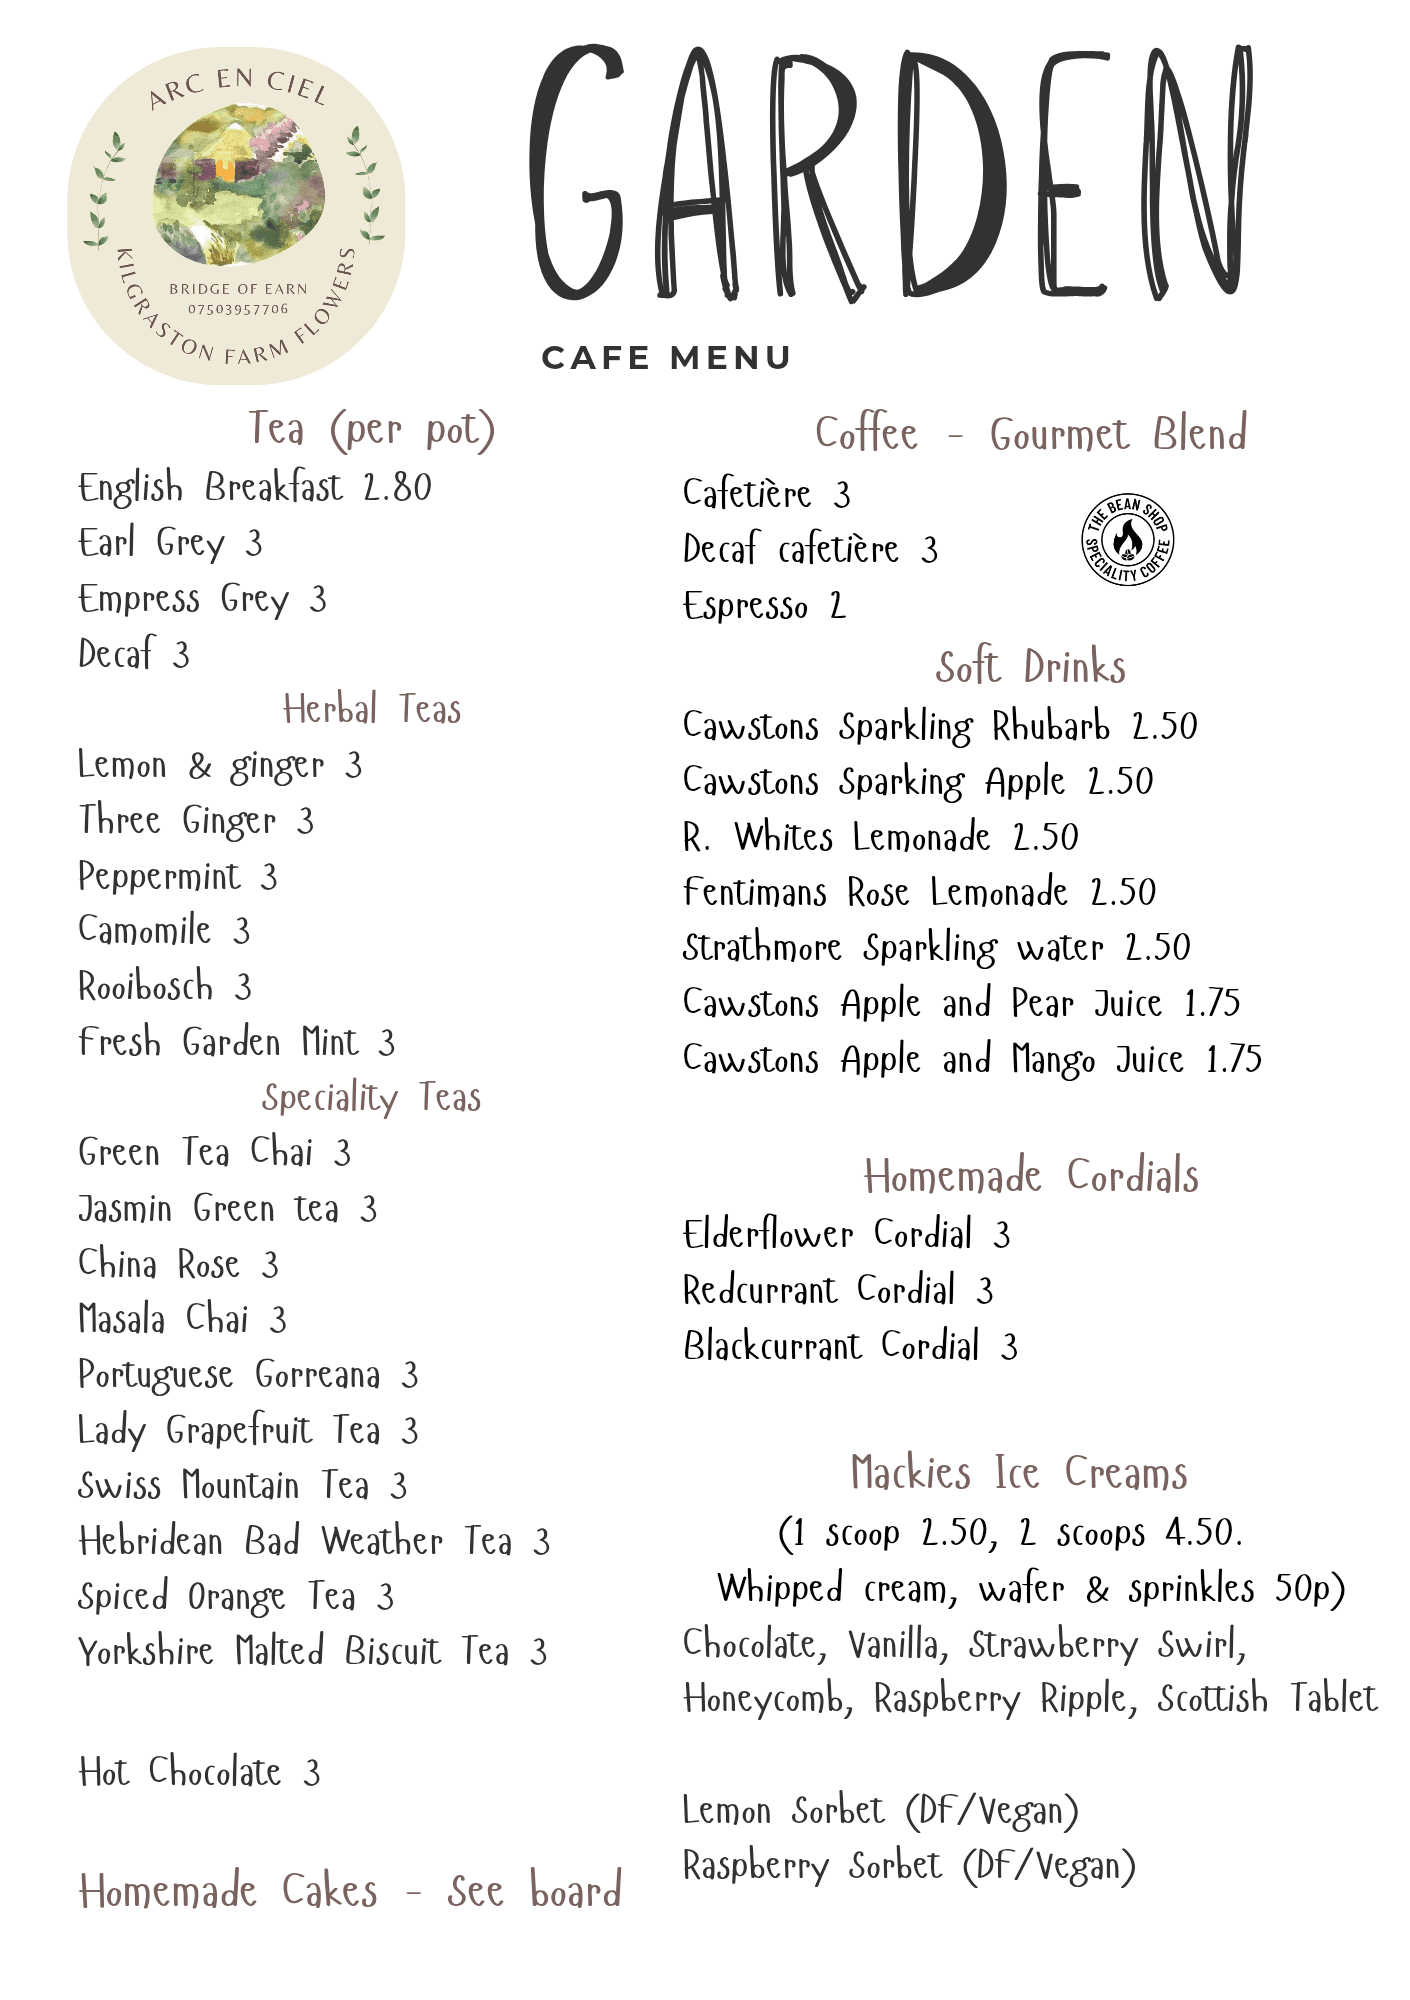 ARC EN CIEL
BRIDGE OF EARN
07503957706
KILGRASTON FARM FLOWERS
GARDEN
CAFE MENU
Tea (per pot)
English Breakfast 2.80
Earl Grey 3
Empress Grey 3
Decaf 3
Herbal Teas
Lemon & ginger 3
Three Ginger 3
Peppermint 3
Camomile 3
Rooibosch 3
Fresh Garden Mint 3
Speciality Teas
Green Tea Chai 3
Jasmin Green tea 3
China Rose 3
Masala Chai 3
Portuguese Gorreana 3
Lady Grapefruit Tea 3
Swiss Mountain Tea 3
Hebridean Bad Weather Tea 3
Spiced Orange Tea 3
Yorkshire Malted Biscuit Tea 3
Hot Chocolate 3
Homemade Cakes - See board
Coffee - Gourmet Blend
Cafetière 3
Decaf cafetière 3
Espresso 2
THE BEAN SHOP
SPECIALITY COFFEE
Soft Drinks
Cawstons Sparkling Rhubarb 2.50
Cawstons Sparking Apple 2.50
R. Whites Lemonade 2.50
Fentimans Rose Lemonade 2.50
Strathmore Sparkling water 2.50
Cawstons Apple and Pear Juice 1.75
Cawstons Apple and Mango Juice 1.75
Homemade Cordials
Elderflower Cordial 3
Redcurrant Cordial 3
Blackcurrant Cordial 3
Mackies Ice Creams
(1 scoop 2.50, 2 scoops 4.50.
Whipped cream, wafer & sprinkles 50p)
Chocolate, Vanilla, Strawberry Swirl,
Honeycomb, Raspberry Ripple, Scottish Tablet
Lemon Sorbet (DF/Vegan)
Raspberry Sorbet (DF/Vegan)